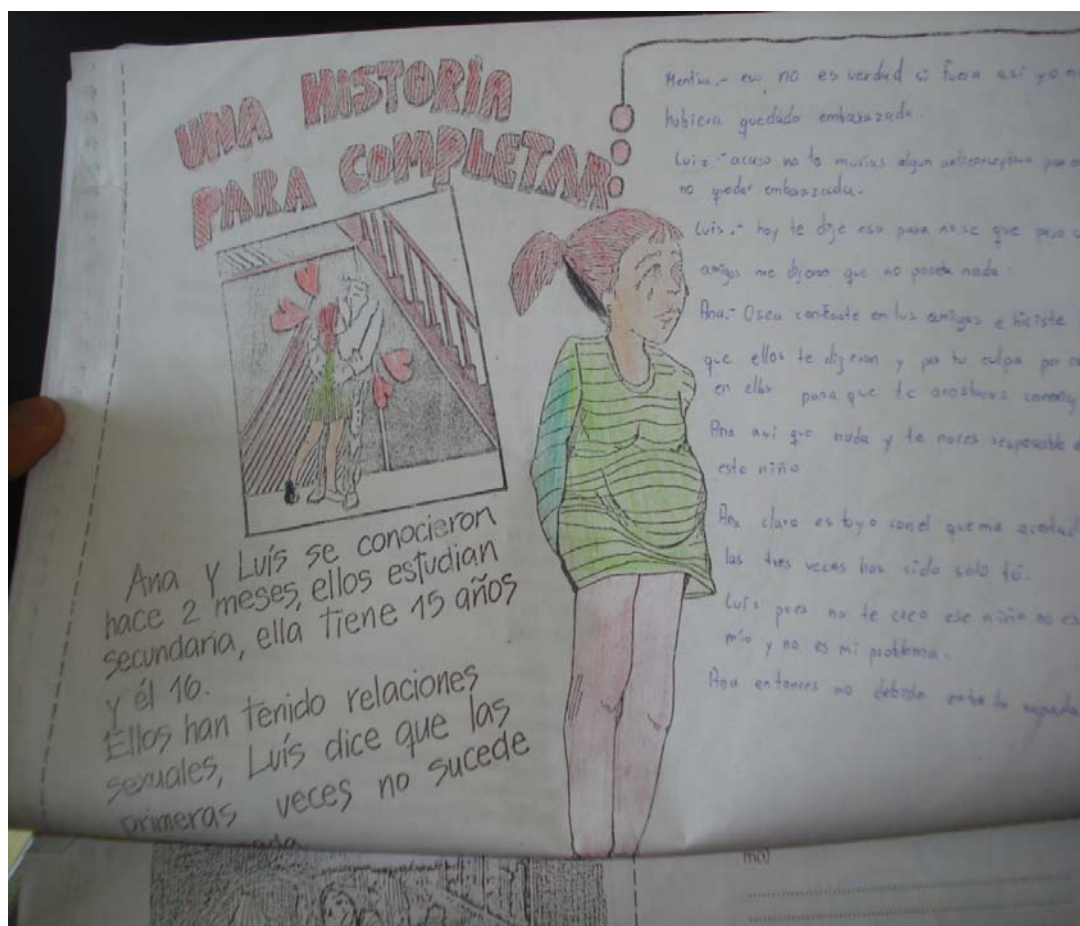 UNA HISTORIA
PARA COMPLETAR:
Ana y Luís se conocieron
hace 2 meses, ellos estudian
secundaria, ella tiene 15 años
y él 16.
Ellos han tenido relaciones
sexuales, Luís dice que las
primeras veces no sucede
nada
no es verdad si fuera asi yo
hubiera quedado embarazada.
Luis.- acaso no algun anticonceptivo
no quedar embarazada.
Luis.- hoy te dije eso para no se que paso
amigos me dijeron que no nada.
Ana.- Osea confiaste en tus amigos e hiciste
que ellos te dijeron y por tu culpa por
en ellos para que te
Ana asi que nada y te responsable
este niño
Ana claro es tuyo con el que me
las tres veces han sido solo tú.
Luis pues no te creo ese niño no es
mío y no es mi problema.
Ana entonces no
mo)